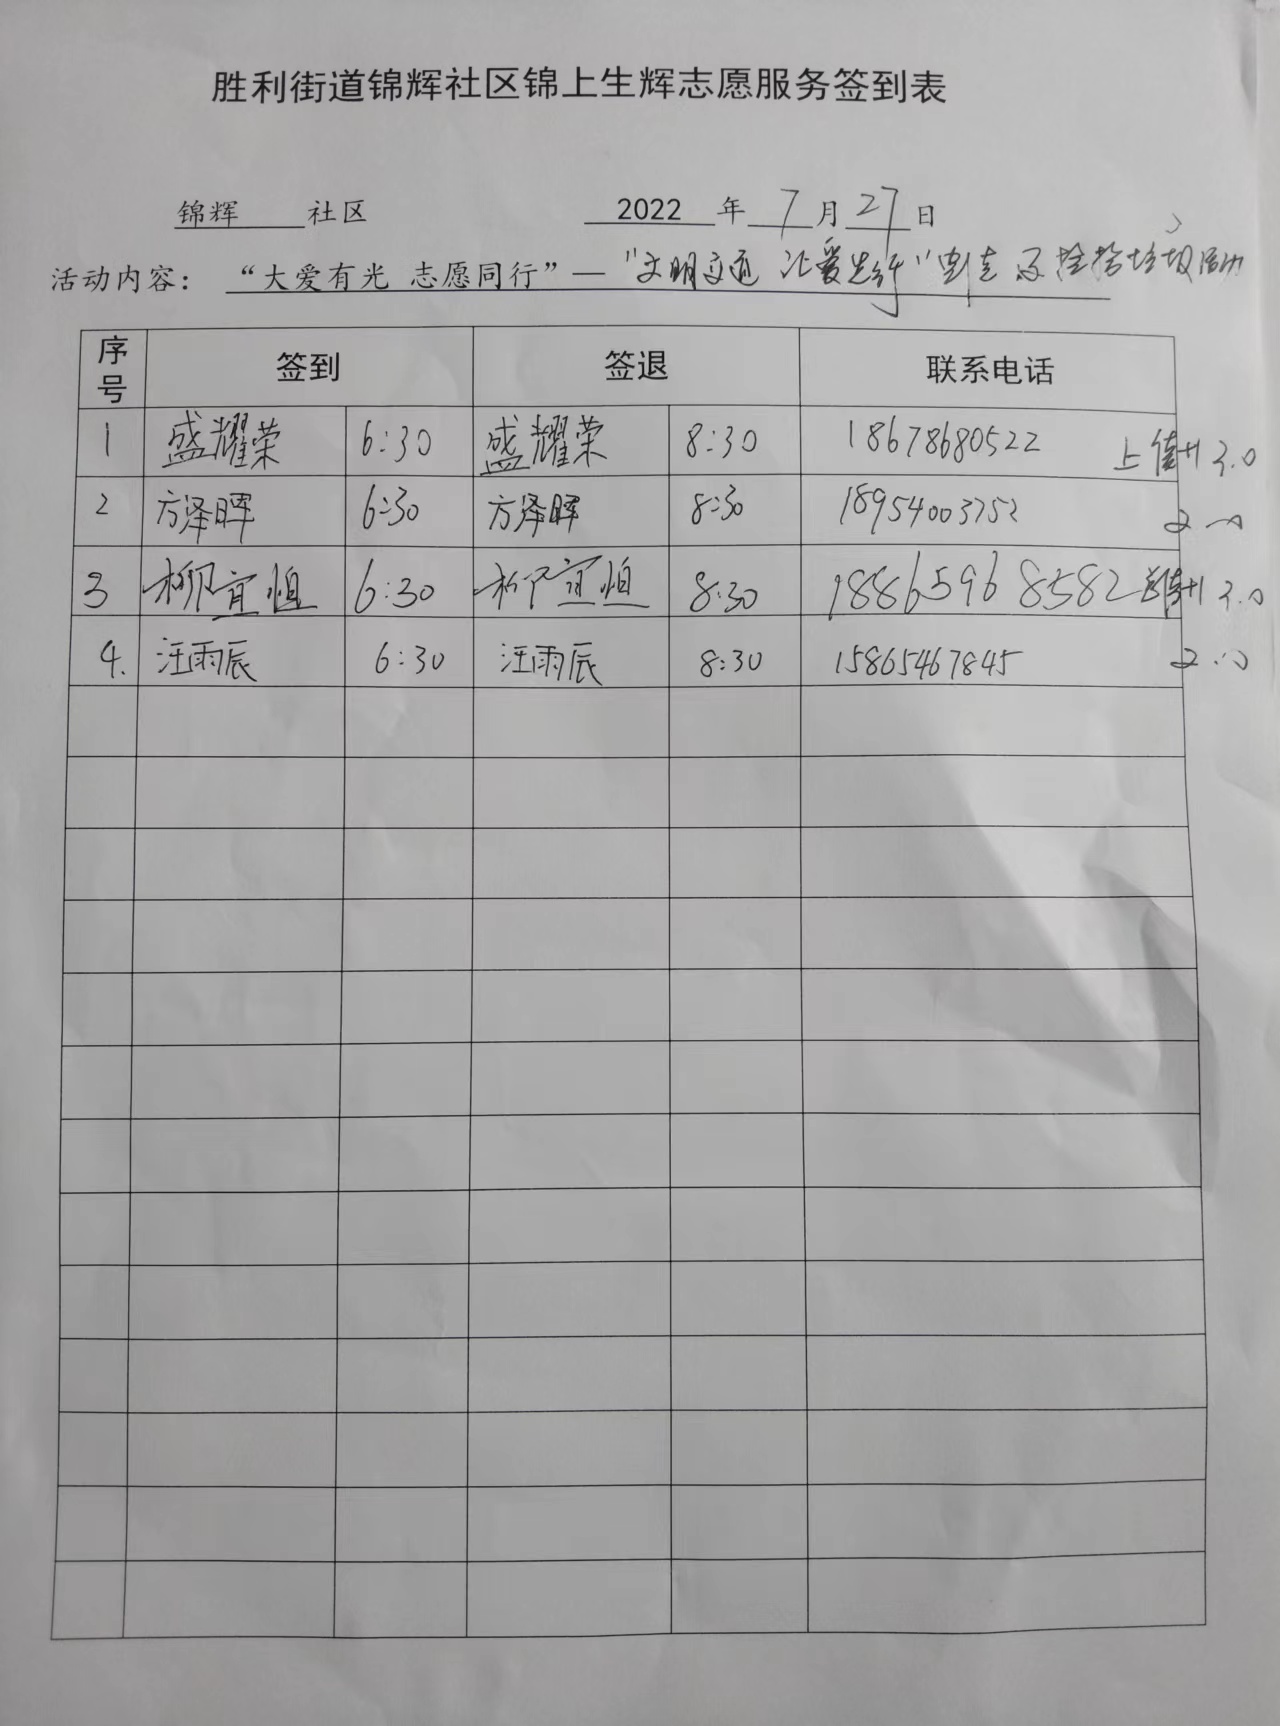 胜利街道锦辉社区锦上生辉志愿服务签到表
锦辉 社区 2022 年 7 月 27 日
活动内容： “大爱有光 志愿同行”—“文明交通 让爱先行”劝 及捡拾垃圾活动
序号 签到 签退 联系电话
1 盛耀荣 6:30 盛耀荣 8:30 18678680522 上 3.0
2 方泽晖 6:30 方泽晖 8:30 18954003752
3 柳宜恒 6:30 柳宜恒 8:30 18865968582 3.0
4. 汪雨辰 6:30 汪雨辰 8:30 15865467845